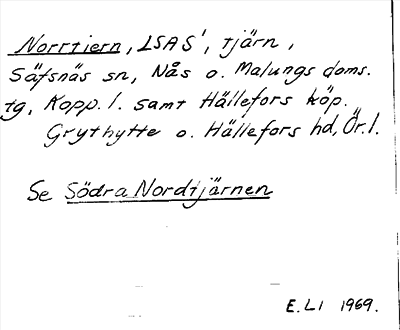 Norrtiern, LSAS', tjärn,
Säfsnäs sn, Nås o. Malungs doms.
tg, Kopp. l. samt Hällefors köp.
Grythytte o. Hällefors hd, Ör. l.
Se Södra Nordtjärnen
E. LI 1969.